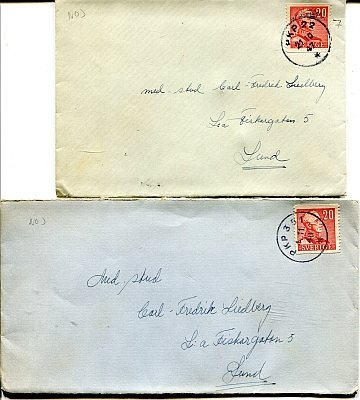 NOJ
20
SVERIGE
PKP 22
7
med stud Carl-Fredrik Liedberg
L:a Fiskargatan 5
Lund
NOJ
20
SVERIGE
PKP 35
Med. stud
Carl-Fredrik Liedberg
L:a Fiskargatan 5
Lund